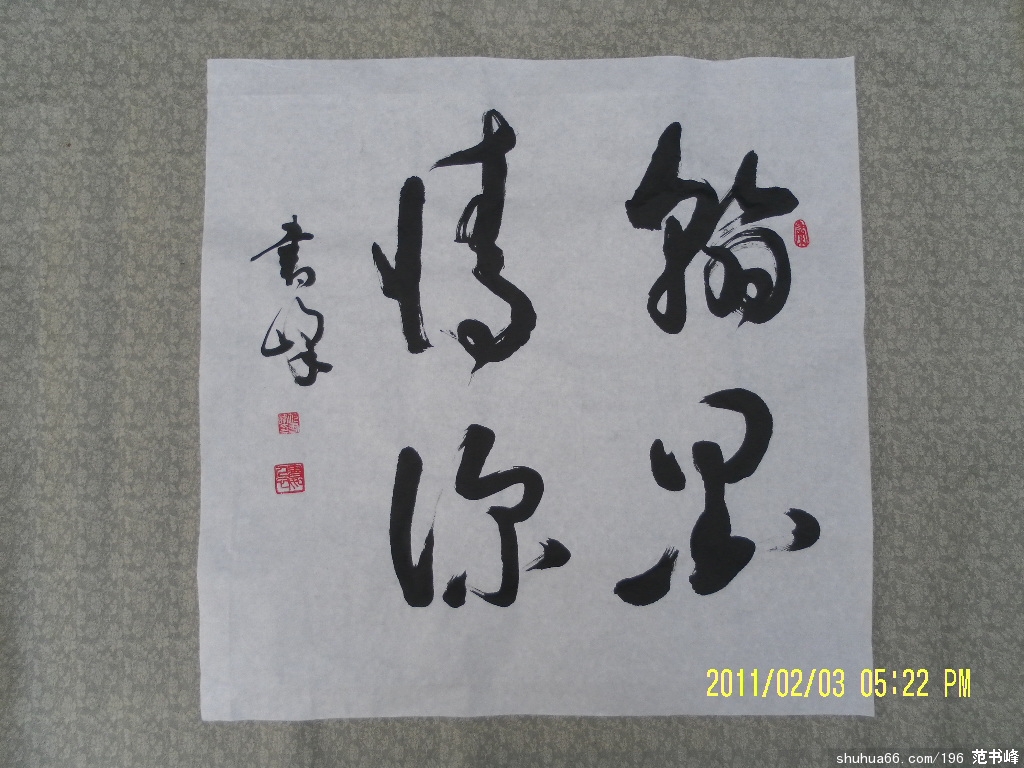 翰墨
情深
書峰
2011/02/03 05:22 PM
shuhua66.com/196 范书峰